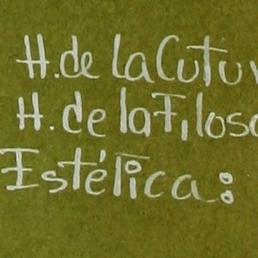 H. de la Cutu
H. de la Filoso
Estética: